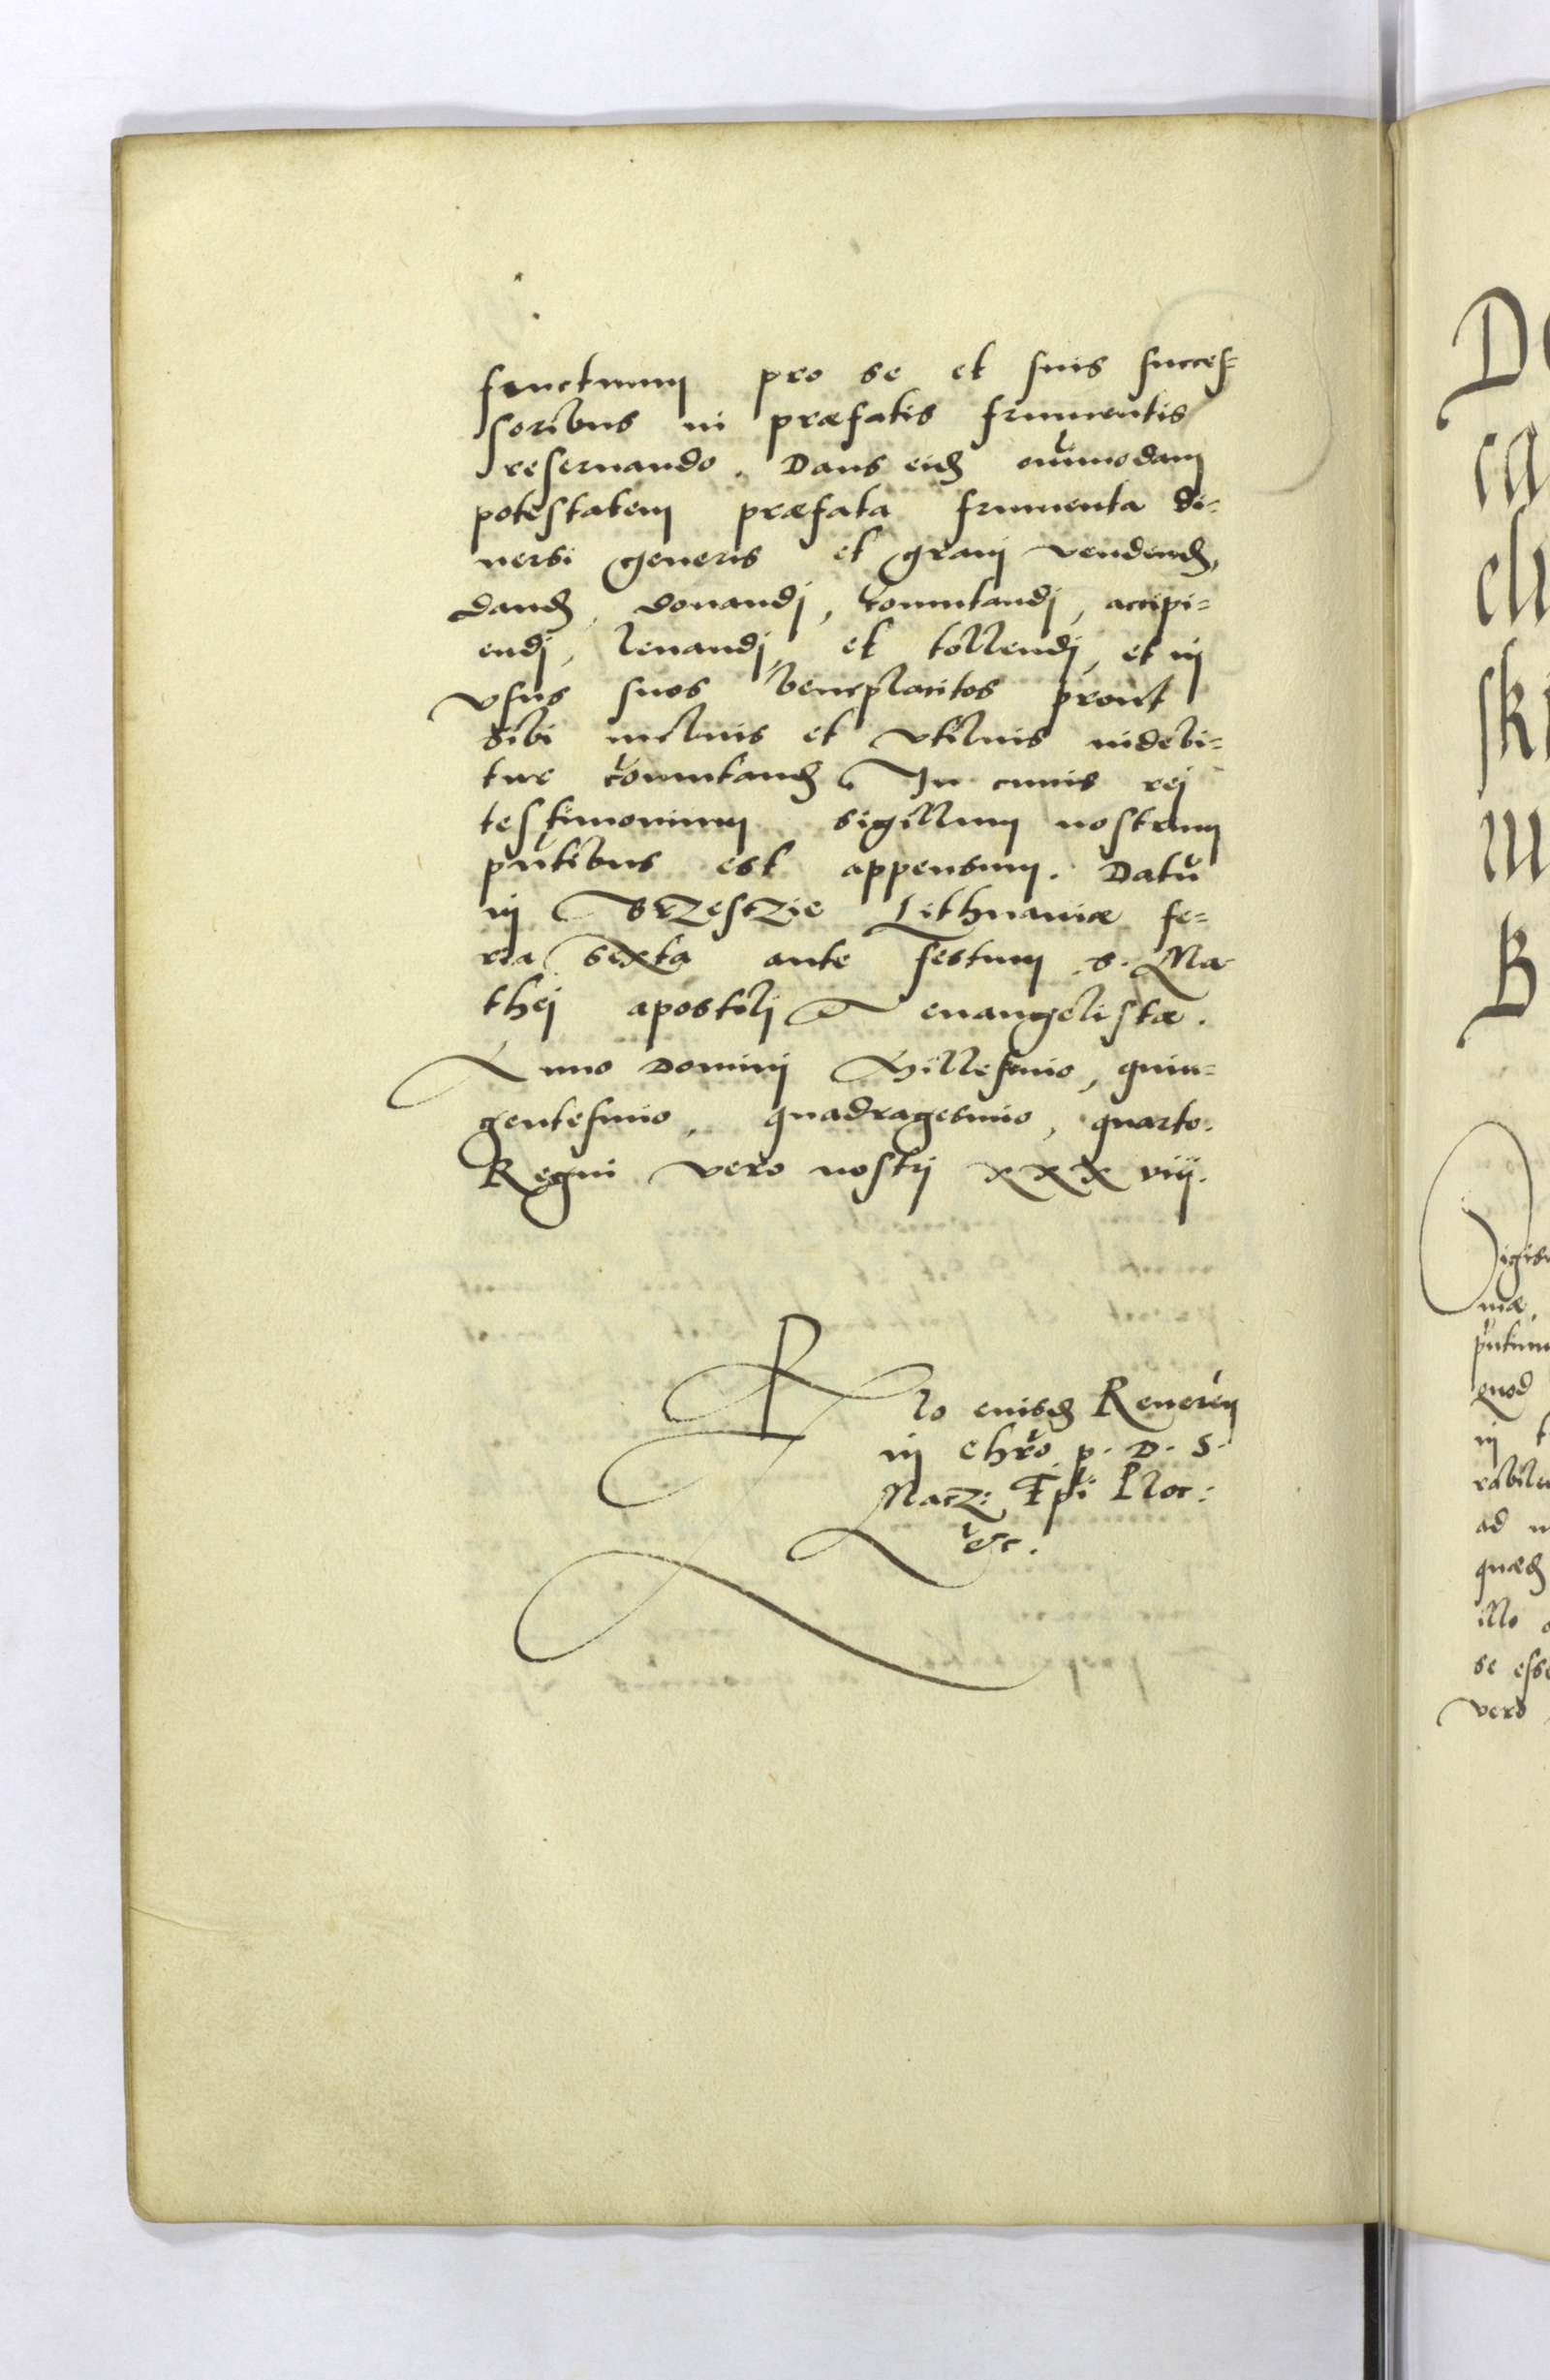 fructuum pro se et suis succes=
soribus in præfatis frumentis
reseruando. Dans eidē om̃modam
potestatem præfata frumenta di=
uersi generis et grani vendendi,
dandi, donandi, com̃utandi, accipi=
endi, leuandi, et tollendi, et in
vsus suos beneplacitos prout
sibi melius et vtilius uidebi=
tur com̃utandi. In cuius rei
testimonium sigillum nostrum
pñtibus est appensum. Datũ
in Brzesczie Lithuaniæ fe=
ria sexta ante festum s. Ma=
thei apostoli et euangelistæ.
Anno Domini Millesimo, quin=
gentesimo, quadragesimo, quarto.
Regni vero nostri xxxviij.
Rlo eiusdē Reueren̄
in Chr̃o p. D. S.
Macz: Ep̃i Ploc:
etc.
D
ca
ch
ski
m
B
mæ,
pñtium
quod
in t
rabile
ad
quæd
illo
se esse
vero